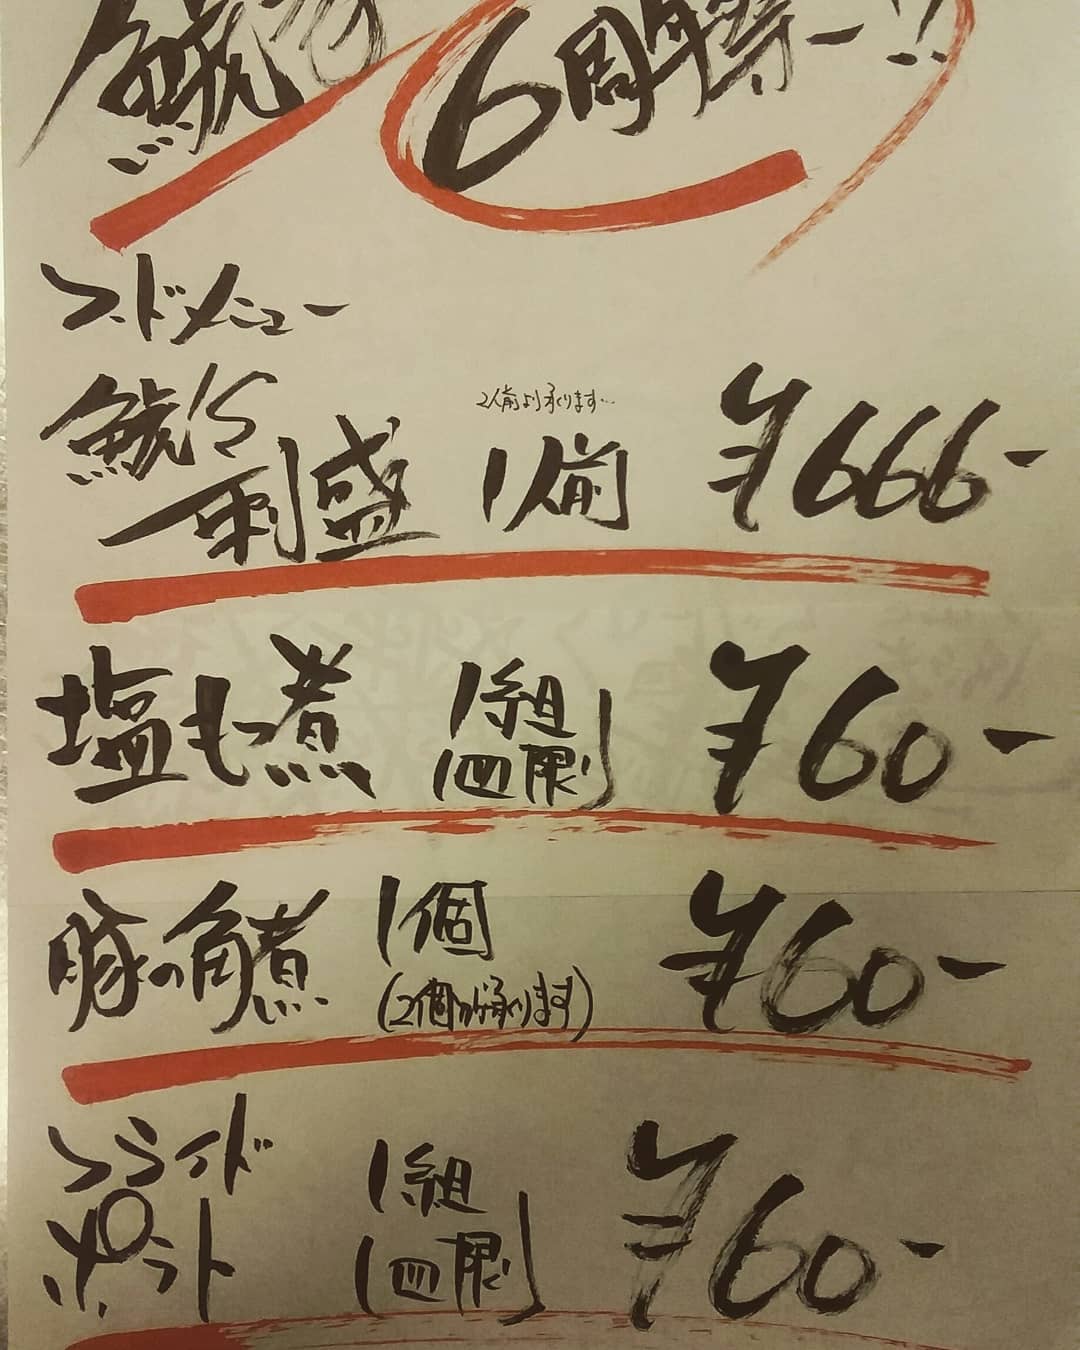 6周年祭ー!!
フードメニュー
鯱's
刺盛 1人前 ¥666-
2人前より承ります…
塩もつ煮 1組 1皿限り ¥60-
豚の角煮 1個 ¥60-
(2個から承ります)
フライド
ポテト 1組 1皿限り ¥60-